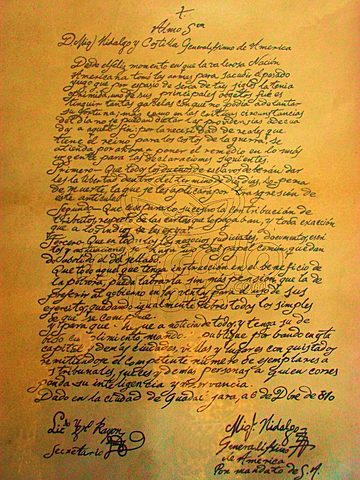 Almo Sor
D. Miglⁱ Hidalgo y Costilla Generalisimo de America
Desde el feliz momento en que la valerosa Nación
Americana tomó las armas para sacudir el pesado
yugo que por espacio de cerca de tres siglos la tenia
oprimida, uno de sus principales objetos fue es
tinguir tantas gabelas con que no podia adelantar
su fortuna; mas como en las criticas circunstancias
del dia no se puedan dictar las providencias adecua
das a aquel fin, por la necesidad de reales que
tiene el reino para los costos de la guerra, se
atiende por ahora a poner el remedio en lo mas
urgente para las declaraciones siguientes.
Primero= Que todos los dueños de esclavos deberán dar
les la libertad dentro del termino de diez dias, so pena
de muerte, la que se les aplicará por trasgresion de
este articulo.
Segundo= Que cese para lo sucesivo la contribución de
tributos, respecto de las castas que lo pagaban, y toda exacción
que a los indios se les exija.
Tercero= Que en todos los negocios judiciales, documentos, escri
turas y actuaciones, se haga uso de papel común, quedan
do abolido el del sellado.
Que todo aquel que tenga instrucción en el beneficio de
la polvora, pueda labrarla, sin mas obligación que la de
preferir al gobierno en las ventas para el uso de sus
ejercitos, quedando igualmente libres todos los simples
de que se compone.
Y para que llegue a noticia de todos y tenga su de
bido cumplimiento, mando se publique por bando en esta
capital y demas ciudades, villas y lugares conquistados
remitiendose el competente numero de ejemplares a
tribunales, jueces y demas personas a quien corres
ponda su inteligencia y observancia.
Dado en la ciudad de Guadalajara, a 6 de Dbre. de 810
Licdo Ygo Rayon
Secretario
Migl. Hidalgo
Generalisimo
de America
Por mandato de S.A.